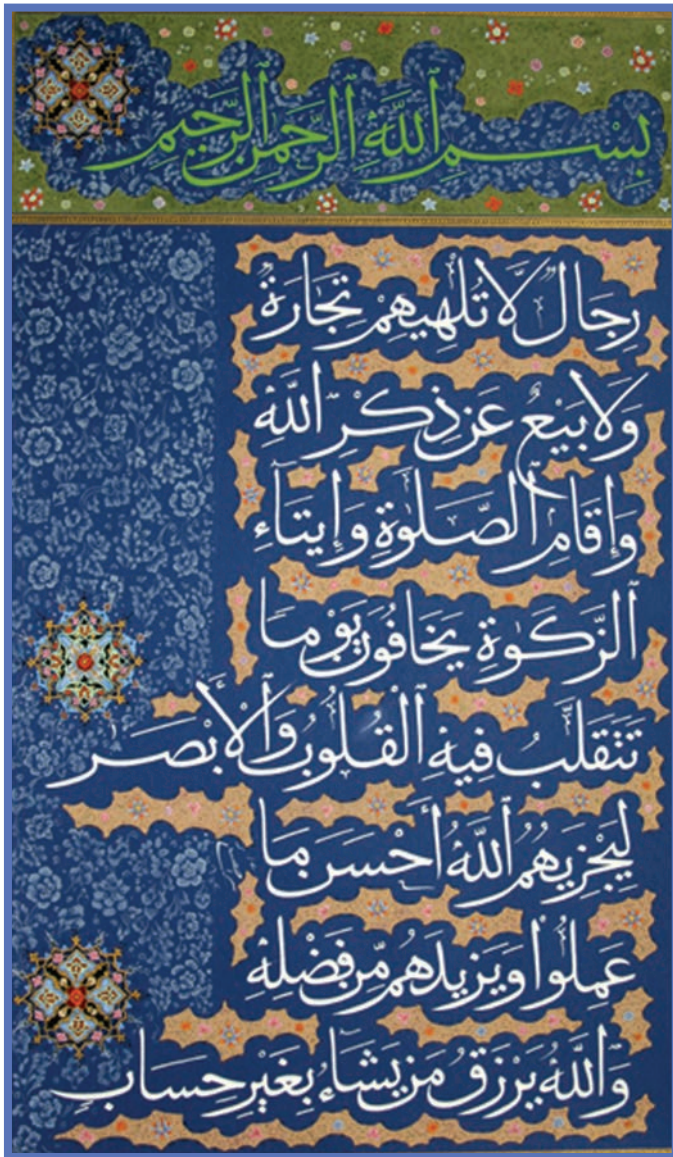 بِسْمِ ٱللَّهِ ٱلرَّحْمَٰنِ ٱلرَّحِيمِ
رِجَالٌ لَّا تُلْهِيهِمْ تِجَارَةٌ
وَلَا بَيْعٌ عَن ذِكْرِ ٱللَّهِ
وَإِقَامِ ٱلصَّلَوٰةِ وَإِيتَآءِ
ٱلزَّكَوٰةِ يَخَافُونَ يَوْمًا
تَتَقَلَّبُ فِيهِ ٱلْقُلُوبُ وَٱلْأَبْصَٰرُ
لِيَجْزِيَهُمُ ٱللَّهُ أَحْسَنَ مَا
عَمِلُوا۟ وَيَزِيدَهُم مِّن فَضْلِهِ
وَٱللَّهُ يَرْزُقُ مَن يَشَآءُ بِغَيْرِ حِسَابٍ